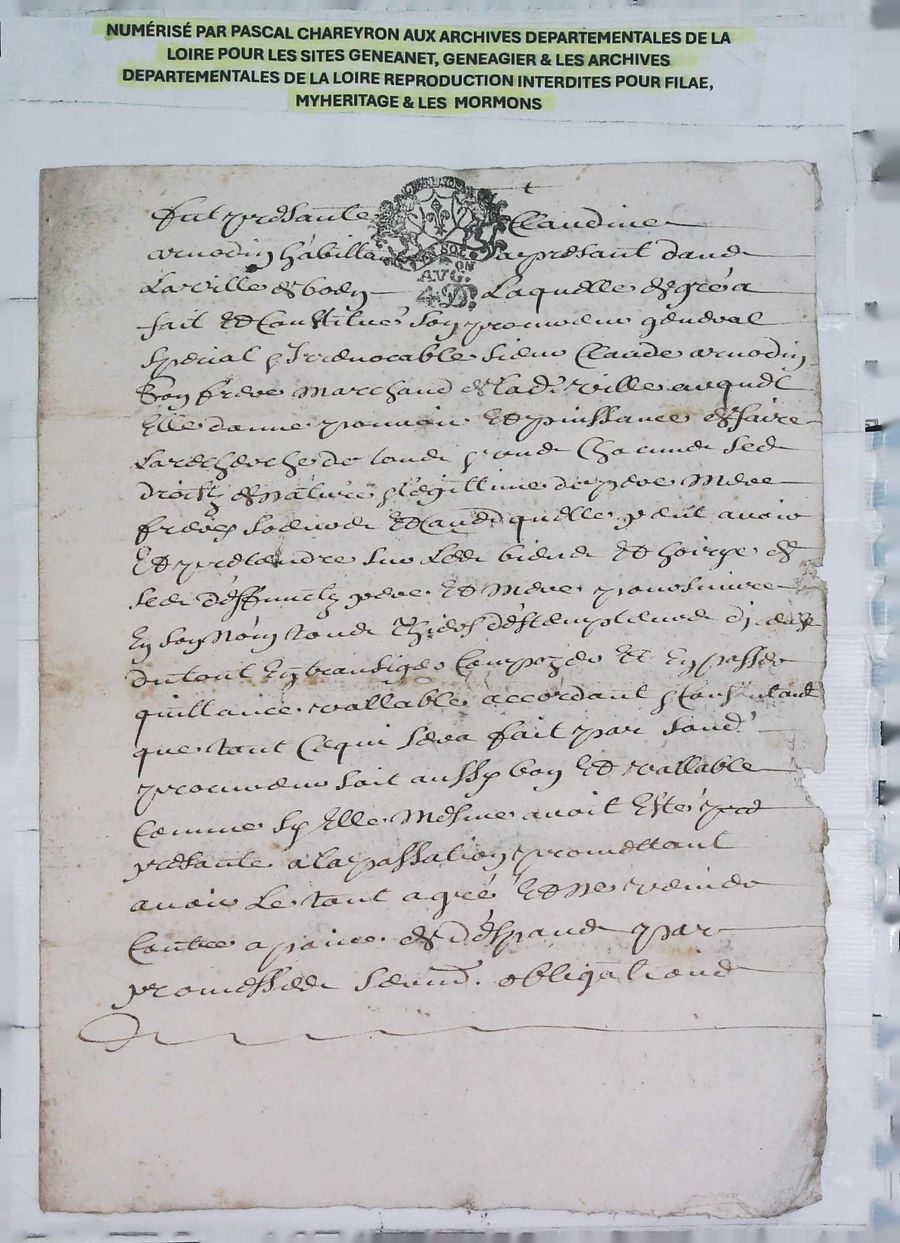 NUMÉRISÉ PAR PASCAL CHAREYRON AUX ARCHIVES DEPARTEMENTALES DE LA
LOIRE POUR LES SITES GENEANET, GENEAGIER & LES ARCHIVES
DEPARTEMENTALES DE LA LOIRE REPRODUCTION INTERDITES POUR FILAE,
MYHERITAGE & LES MORMONS
fut presante Claudine
arnodin habitta apresant dans
La ville de boen Laquelle de gré a
fait et Constitué son procureur général
spécial et Irrevocable sieur Claude arnodin
Son frère Marchand de lad. ville auquel
Elle donne pouvoir et puissance de faire
La recherche de tous et ung Chacuns ses
droitz de nature et légittime de père Mère
frères soeurs et quelle peut avoir
Et pretandre sur les biens et hoirye de
sesd. déffuntz père et Mère poursuivre
En son Nom tous
du tout En transiger Composer et En passer
quittance vallable accordant et consentant
que tout Ce qui sera fait par sond.
procureur soit aussy bon et vallable
Comme sy Elle Mesme avoit Esté pnt
présante a la passation promettant
avoir Le tout agréé Et ne venir
Contre a paine de déspans par
promesses serm. obligations